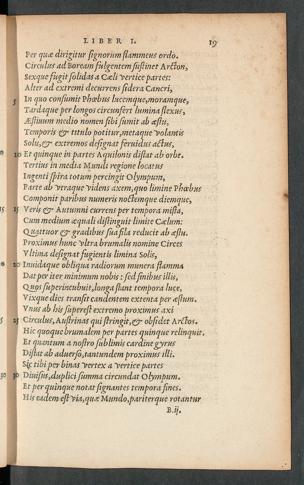 LIBER I. 19
Per quæ dirigitur signorum flammeus ordo.
Circulus ad Boream fulgentem sustinet Arcton,
Sexque fugit solidas a Cæli vertice partes:
Alter ad extremi decurrens sidera Cancri,
5 In quo consumit Phœbus lucemque, moramque,
Tardaque per longos circumfert lumina flexus,
Æstiuum medio nomen sibi sumit ab æstu,
Temporis & titulo potitur, metaque volantis
Solis, & extremos designat feruidus actus,
10 Et quinque in partes Aquilonis distat ab orbe.
Tertius in media Mundi regione locatus
Ingenti spira totum percingit Olympum,
Parte ab vtraque videns axem, quo limine Phœbus
Componit paribus numeris noctemque diemque,
15 15 Veris & Autumni currens per tempora mista,
Cum medium æquali distinguit limite Cælum:
Quattuor & gradibus sua fila reducit ab æstu.
Proximus hunc vltra brumalis nomine Circes
Vltima designat fugientis limina Solis,
20 Inuidaque obliqua radiorum munera flamma
Dat per iter minimum nobis: sed finibus illis,
Quos superincubuit, longa stant tempora luce,
Vixque dies transit candentem extenta per æstum.
Vnus ab his superest extremo proximus axi
25 Circulus, Austrinas qui stringit, & obsidet Arctos.
Hic quoque brumalem per partes quinque relinquit.
Et quantum a nostro sublimis cardine gyrus
Distat ab aduerso, tantundem proximus illi.
Sic tibi per binas vertex a vertice partes
30 30 Diuisus, duplici summa circundat Olympum.
Et per quinque notat signantes tempora fines.
His eadem est via, quæ Mundo, pariterque rotantur
B.ij.